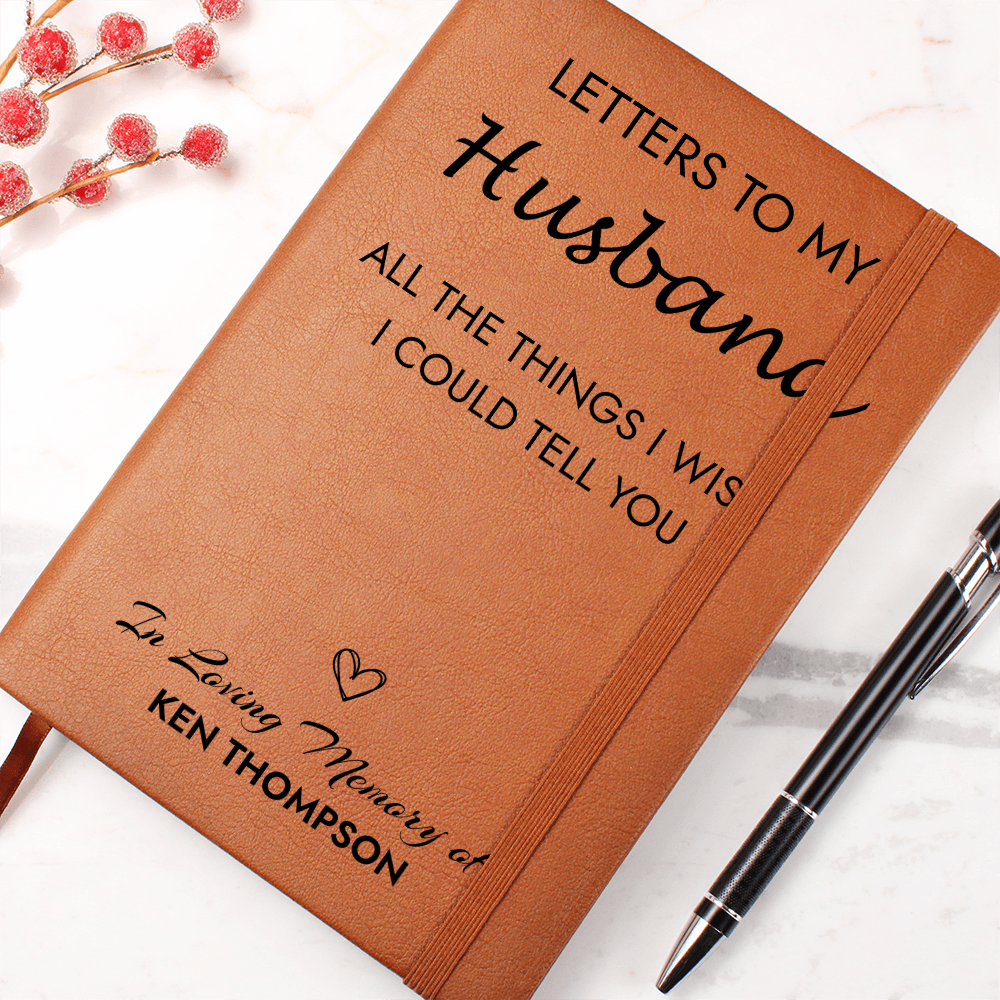 LETTERS TO MY
Husband
ALL THE THINGS I WIS
I COULD TELL YOU
In Loving Memory of
KEN THOMPSON